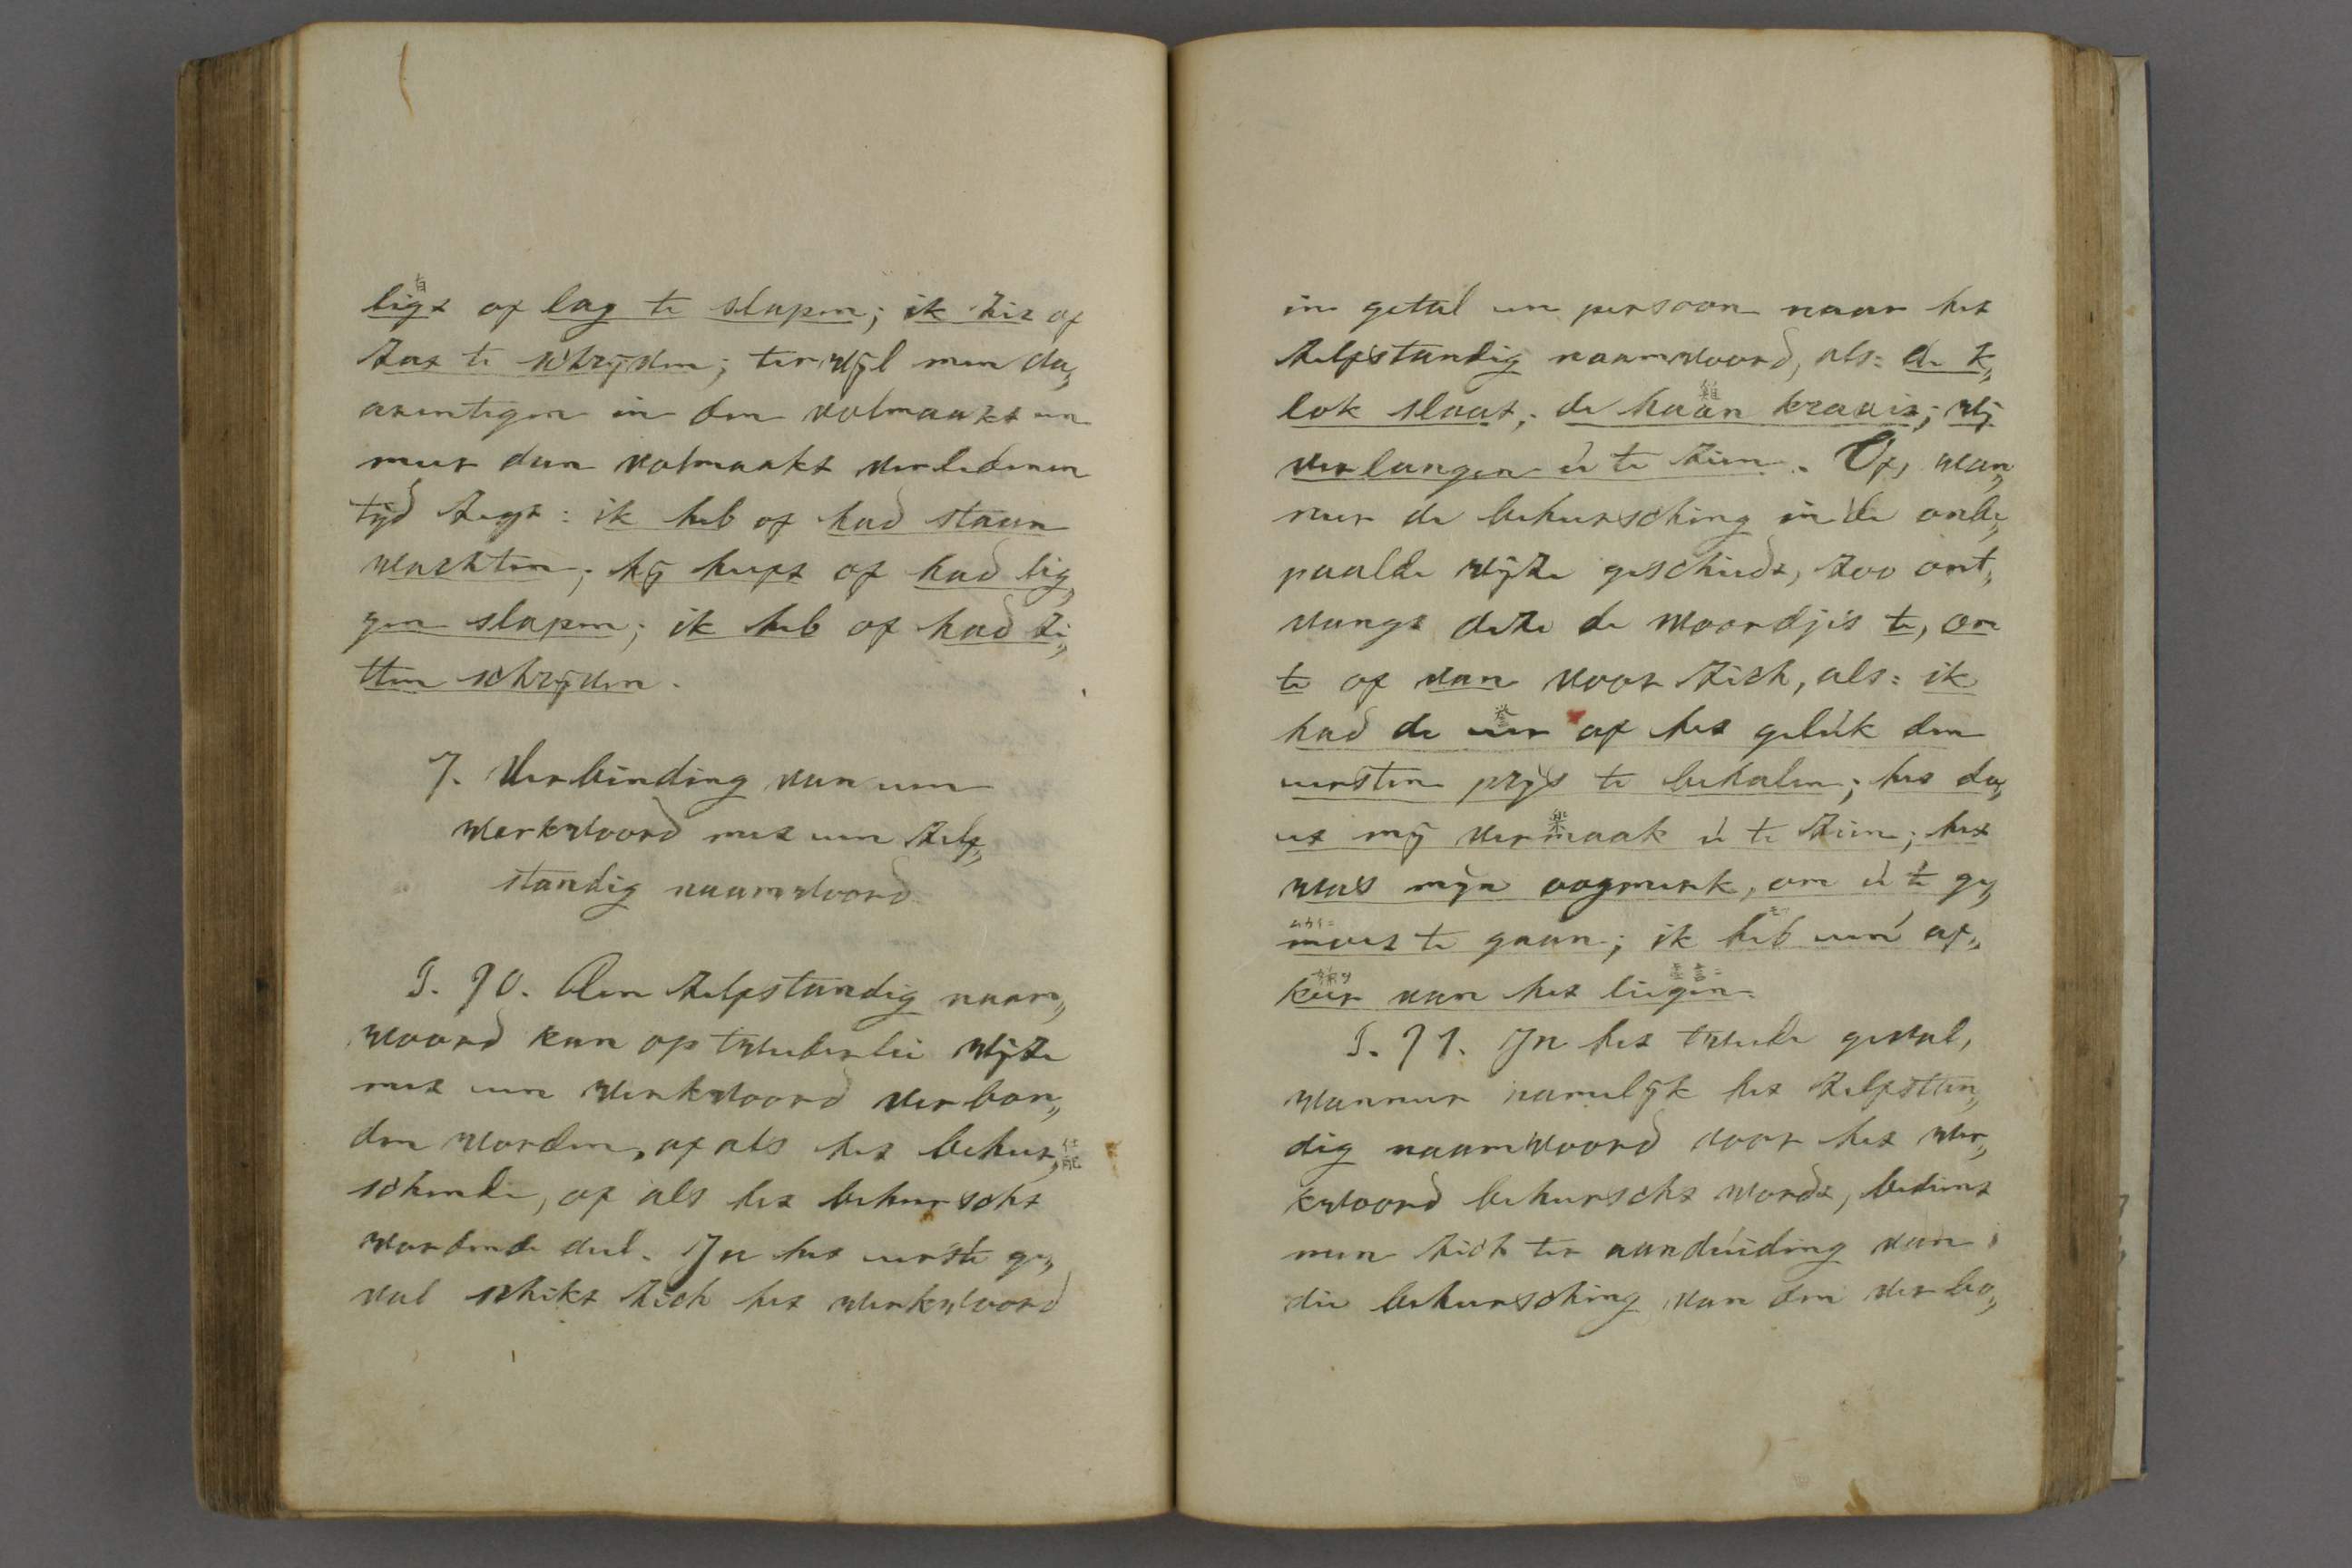 ligt of lag te slapen; ik zit of
zat te schrijven; terwijl men da„
arentegen in den volmaakt en
meer dan volmaakt verledenen
tijd zegt: ik heb of had staan
wachten; hij heeft of had lig„
gen slapen; ik heb of had zi„
tten schrijven.
7. Verbinding van een
werkwoord met een zelf„
standig naamwoord
§. 70. Een zelfstandig naam„
woord kan op tweederlei wijze
met een werkwoord verbon„
den worden, of als het beheer„
schende, of als het beheerscht
wordende deel. In het eerste ge„
val schikt zich het werkwoord
in getal en persoon naar het
zelfstandig naamwoord, als: de k„
lok slaat; de haan kraait; wij
verlangen ú te zien. Of, wan„
neer de beheersching in de onbe„
paalde wijze geschiedt, zoo ont„
vangt deze de woordjes te, om
te of van voor zich, als: ik
had de eer of het gelúk den
eersten prijs te behalen; het do„
et mij vermaak ú te zien; het
was mijn oogmerk, om ú te ge„
moet te gaan; ik heb een af„
keer van het liegen.
§. 71. In het tweede geval,
wanneer namelijk het zelfstan„
dig naamwoord door het wer„
kwoord beheerscht wordt, bedient
men zich ter aandúiding van
die beheersching van den verbo„
鶏
誉
楽
嫌フ
虚言